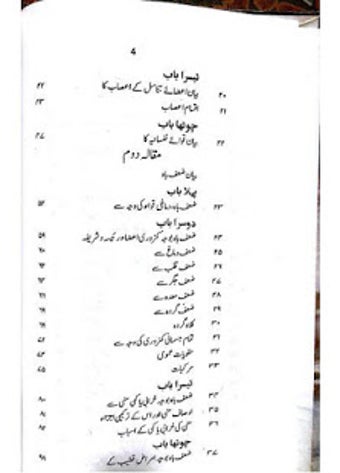 4
تیسرا باب
۲۰ بیان اعضائے تناسل کے اعصاب کا ۴۲
۲۱ اقسام اعصاب ۴۳
چوتھا باب
۲۲ بیان قوائے نفسانیہ کا ۴۷
مقالہ دوم
بیان ضعف باہ
پہلا باب
۲۳ ضعف باہ دماغی قواء کی وجہ سے ۵۲
دوسرا باب
۲۴ ضعف باہ بوجہ کمزوری اعضاء رئیسہ و شریفہ ۵۹
۲۵ ضعف دماغ سے
۲۶ ضعف قلب سے
۲۷ ضعف جگر سے
۲۸ ضعف معدہ سے
۲۹ ضعف گردہ سے
۳۰ گردہ
۳۱ تمام جسمانی کمزوری کی وجہ سے
۳۲ مقویات عمومی
۳۳ مرکبات
تیسرا باب
۳۴ ضعف باہ بوجہ خرابی یا کمی منی سے ۸۰
۳۵ اوصاف منی اور اس کے ترکیبی اجزاء
۳۶ منی کی خرابی یا کمی کے اسباب
چوتھا باب
۳۷ ضعف باہ بوجہ امراض قضیب کے ۹۸